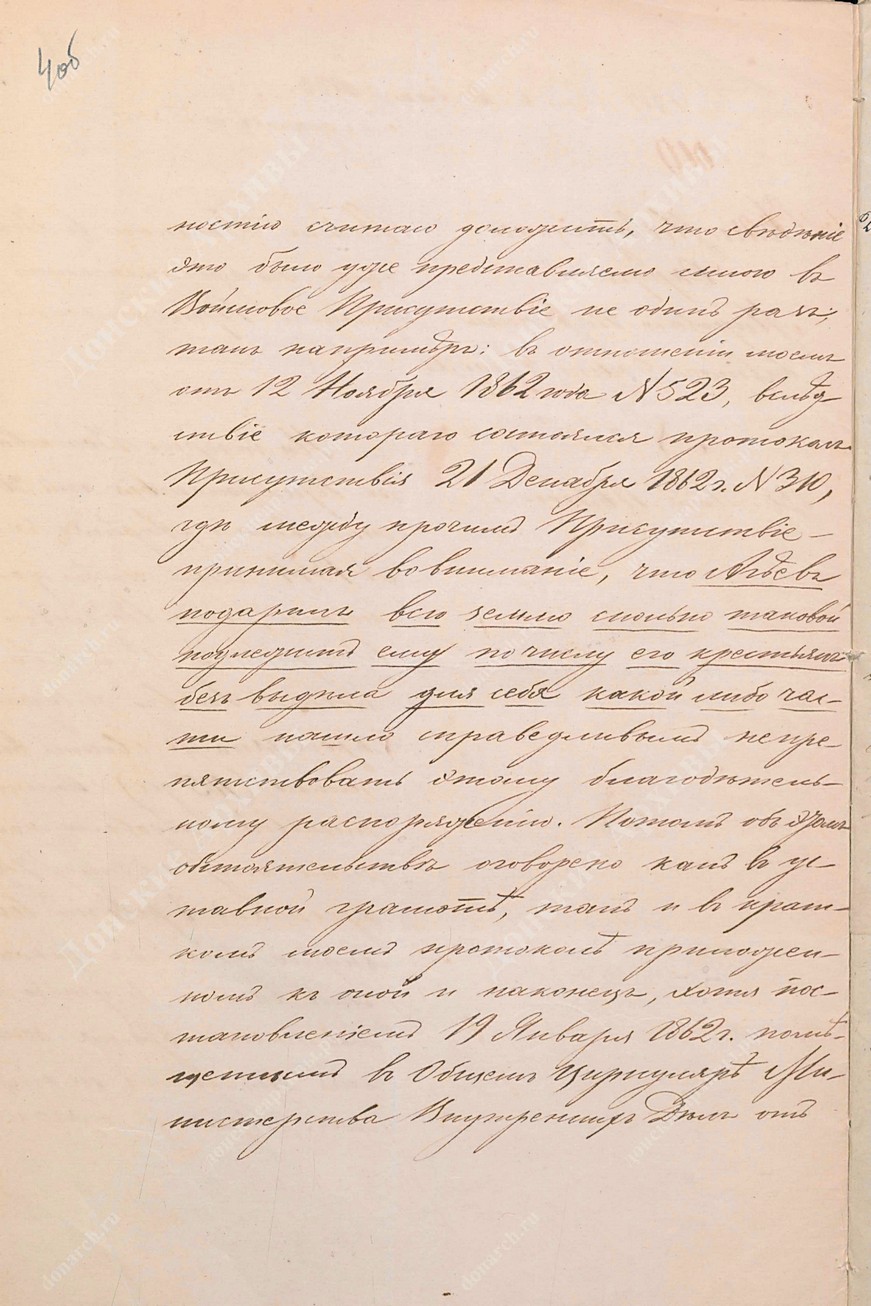 4об
ностію считаю доложить, что свѣдѣніе
это было уже представляемо мною въ
Войсковое Присутствіе не одинъ разъ,
такъ напримѣръ: въ отношеніи моемъ
отъ 12 Ноября 1862 года N 523, вслѣд-
ствіе котораго состоялся протоколъ
Присутствія 21 Декабря 1862 г. N 310,
гдѣ между прочимъ Присутствіе –
принимая во вниманіе, что
подарилъ всю землю сколько таковой
подлежитъ ему по числу его крестьянъ
безъ выдѣла для себя какой либо час-
ти нашло справедливымъ не пре-
пятствовать этому благодѣтель-
ному распоряженію. Потомъ объ этомъ
обстоятельствѣ оговорено какъ въ ус-
тавной грамотѣ, такъ и въ крат-
комъ моемъ протоколѣ приложен-
номъ къ оной и наконецъ, хотя пос-
тановленіемъ 19 Января 1862 г. помѣ-
щеннымъ въ Общемъ Циркулярѣ Ми-
нистерства Внутреннихъ Дѣлъ отъ